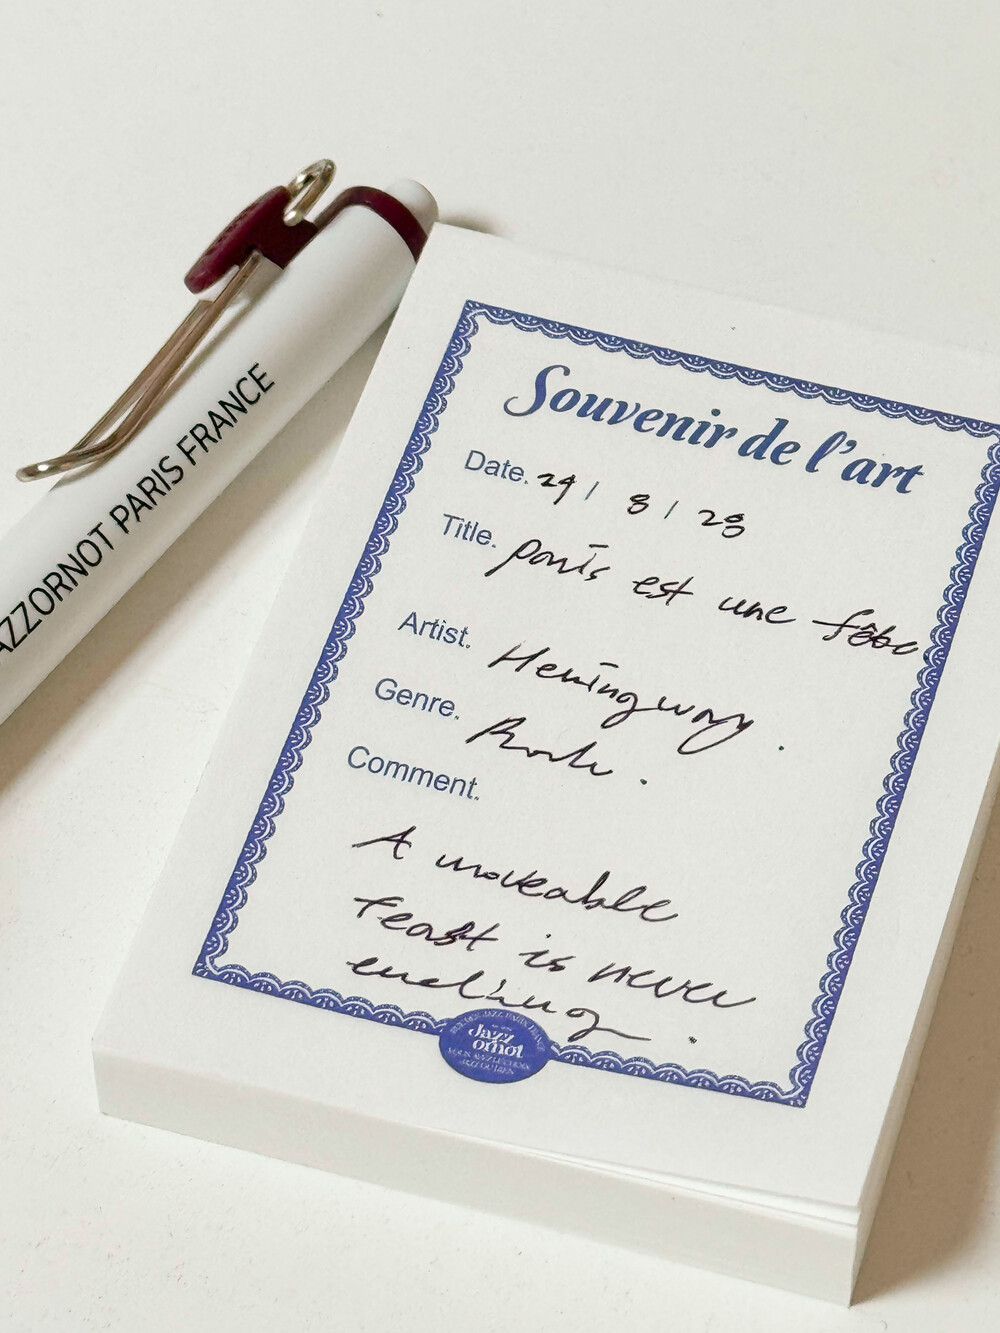 AZZORNOT PARIS FRANCE
Souvenir de l'art
Date. 29 / 8 / 28
Title. Paris est une fête
Artist. Hemingway.
Genre.
Comment.
A moveable
feast is never
ending.
Jazz
ornot